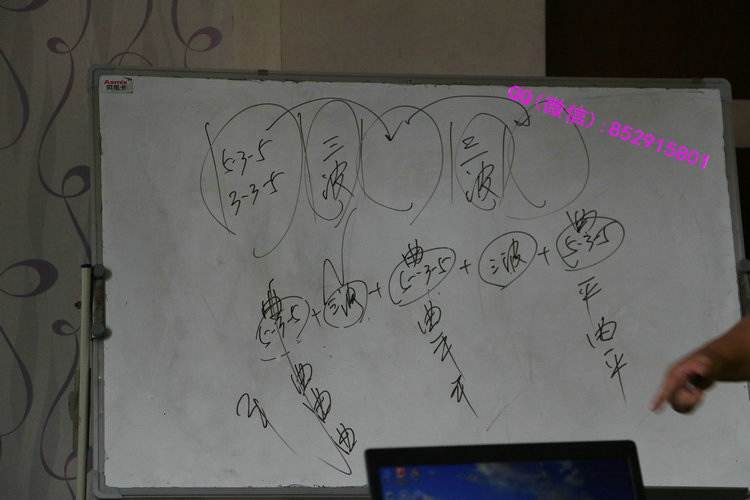 Asmix
QQ(微信):852915801
5-3-5 三波 三波
3-3-5
曲 曲
5-3-5 + 三波 + 5-3-5 + 三波 + 5-3-5
曲 曲 平
曲 平 曲
曲 平 平
平